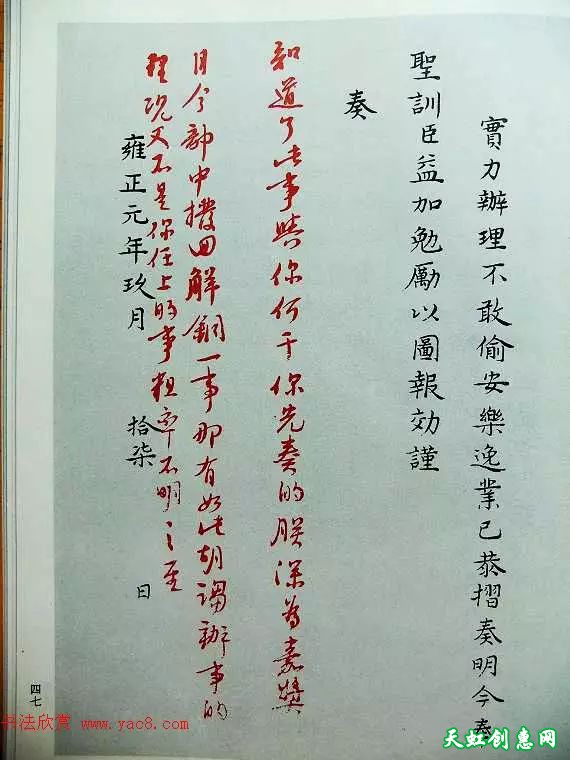 實力辦理不敢偷安樂逸業已恭摺奏明今奉
聖訓臣益加勉勵以圖報効謹
奏
知道了此事與你何干你先奏的朕深為嘉獎
目今部中撥回解銅一事那有如此胡謅辦事的
理況又不是你任上的事粗率不明之至
雍正元年玖月 拾柒 日
四七
书法欣赏 www.yac8.com
天虹创惠网